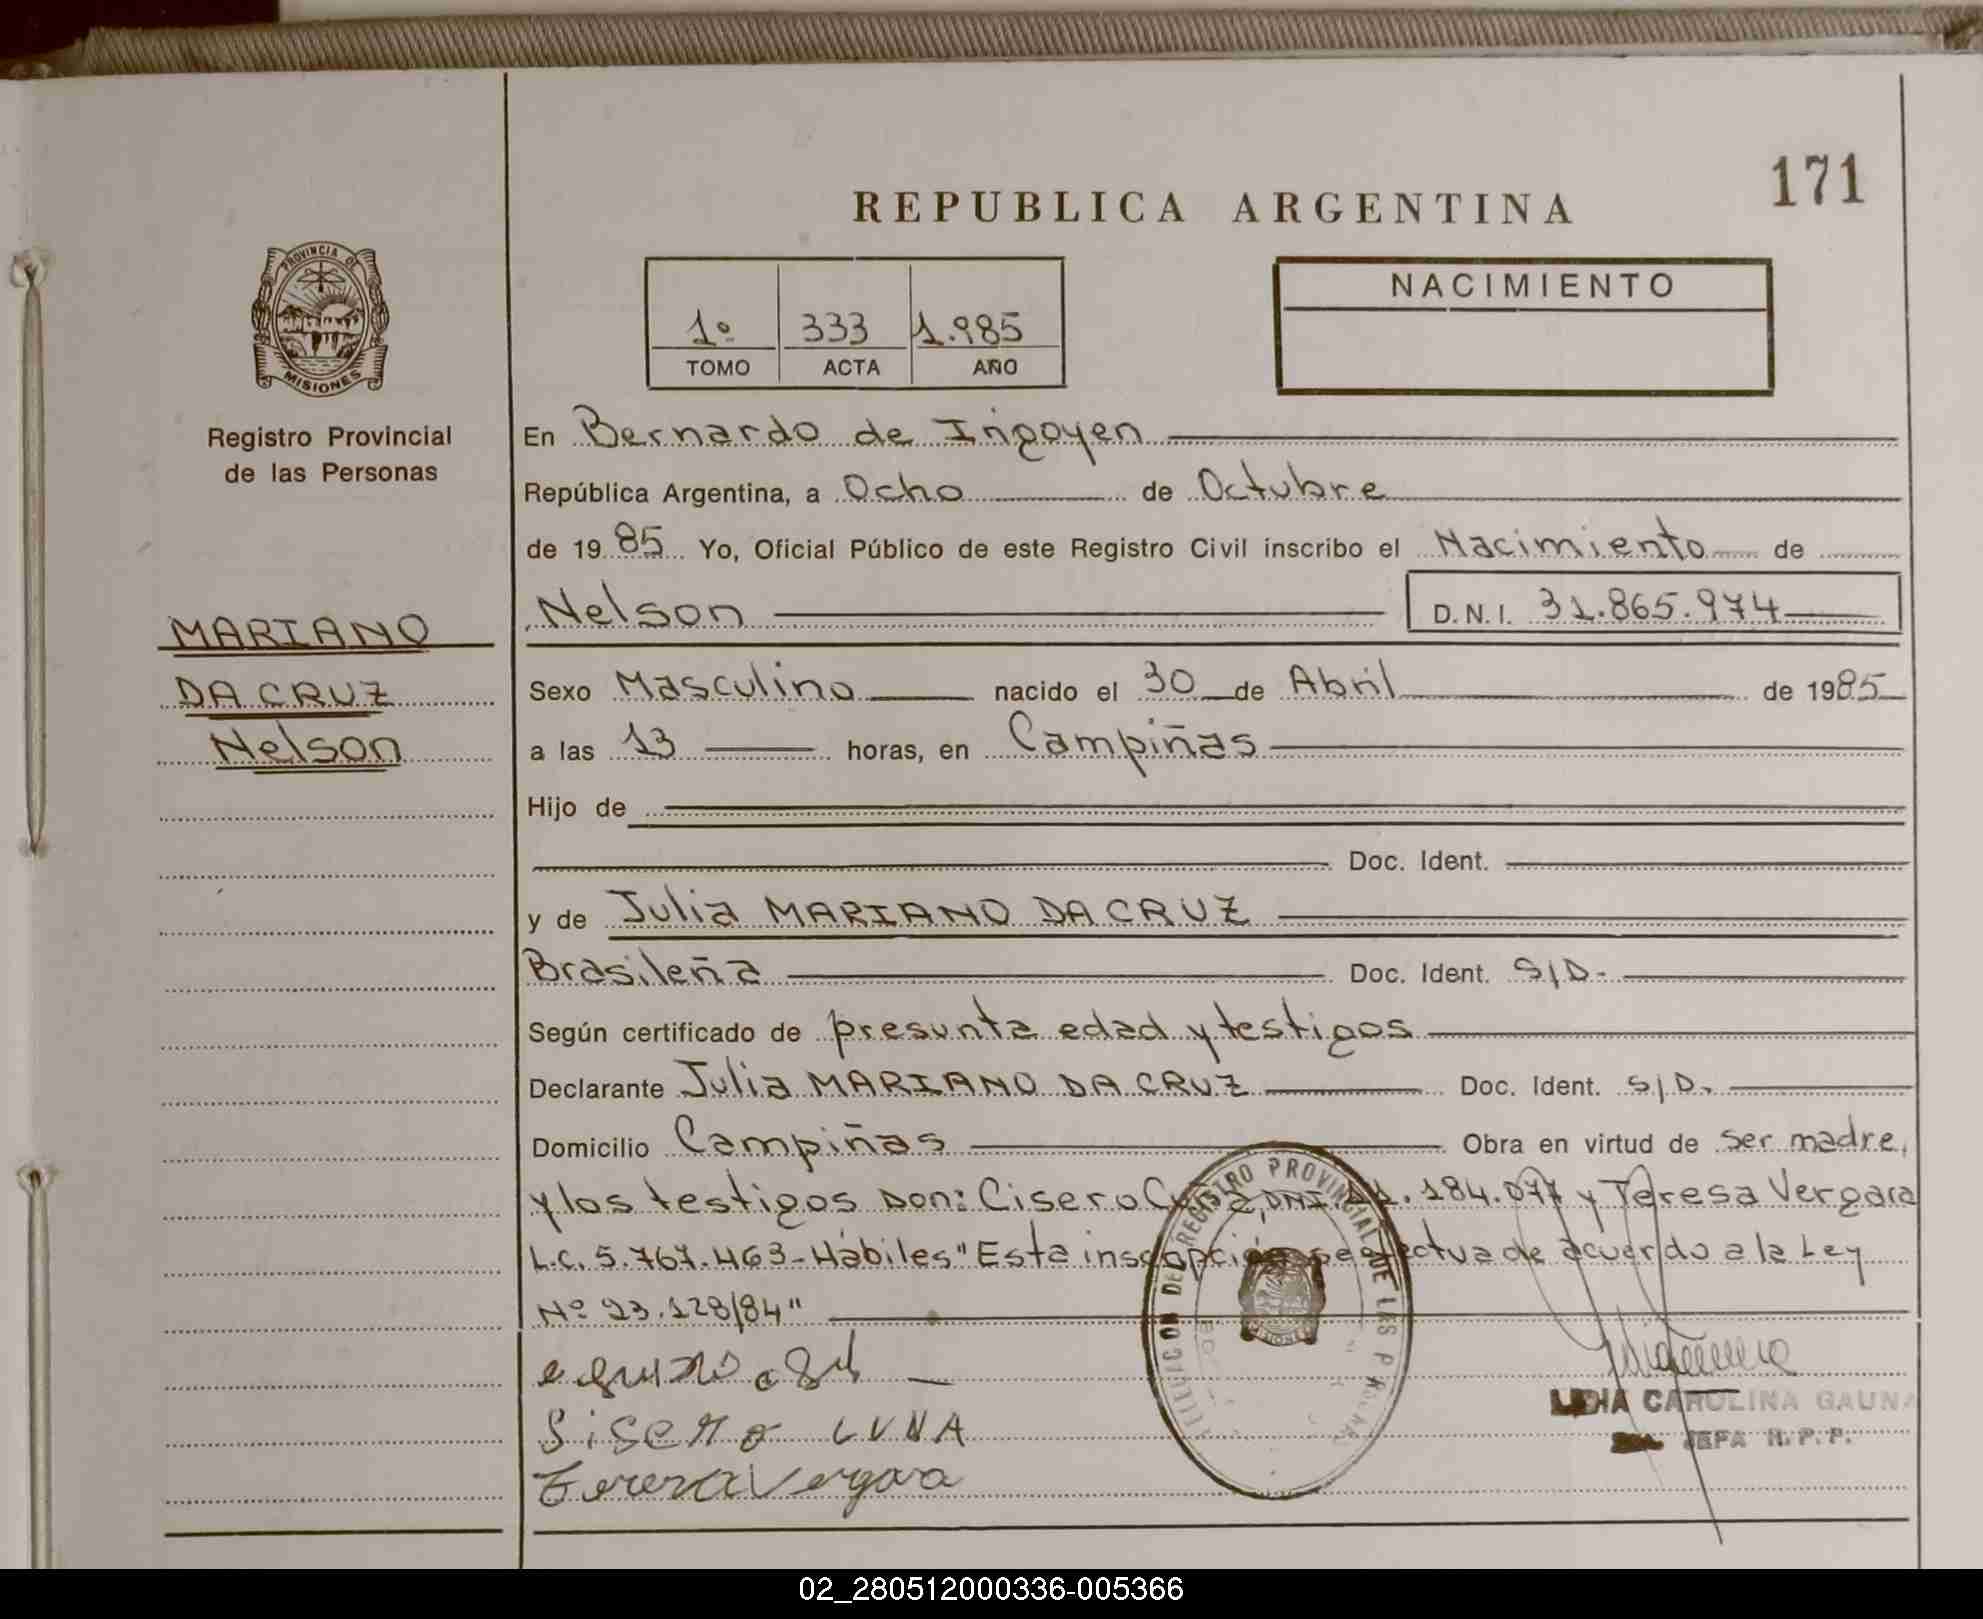 171
REPUBLICA ARGENTINA
PROVINCIA DE
MISIONES
Registro Provincial
de las Personas
1º 333 1.985
TOMO ACTA AÑO
NACIMIENTO
En Bernardo de Irigoyen
República Argentina, a Ocho de Octubre
de 1985 Yo, Oficial Público de este Registro Civil inscribo el Nacimiento de
Nelson D.N.I. 31.865.974
MARIANO
DA CRUZ
Nelson
Sexo Masculino nacido el 30 de Abril de 1985
a las 13 horas, en Campiñas
Hijo de
Doc. Ident.
y de Julia MARIANO DA CRUZ
Brasileña Doc. Ident. S/D.
Según certificado de presunta edad y testigos
Declarante Julia MARIANO DA CRUZ Doc. Ident. S/D.
Domicilio Campiñas Obra en virtud de ser madre,
y los testigos Don: Cisero DNI. 184.077 y Teresa Vergara
L.C. 5.767.463-Hábiles "Esta inscripción se efectua de acuerdo a la Ley
Nº 23.128/84"
Sisero LUNA
Teresa Vergara
REGISTRO PROVINCIAL DE LAS
MISIONES
LIDIA CAROLINA GAUNA
JEFA R.P.P.
02_280512000336-005366